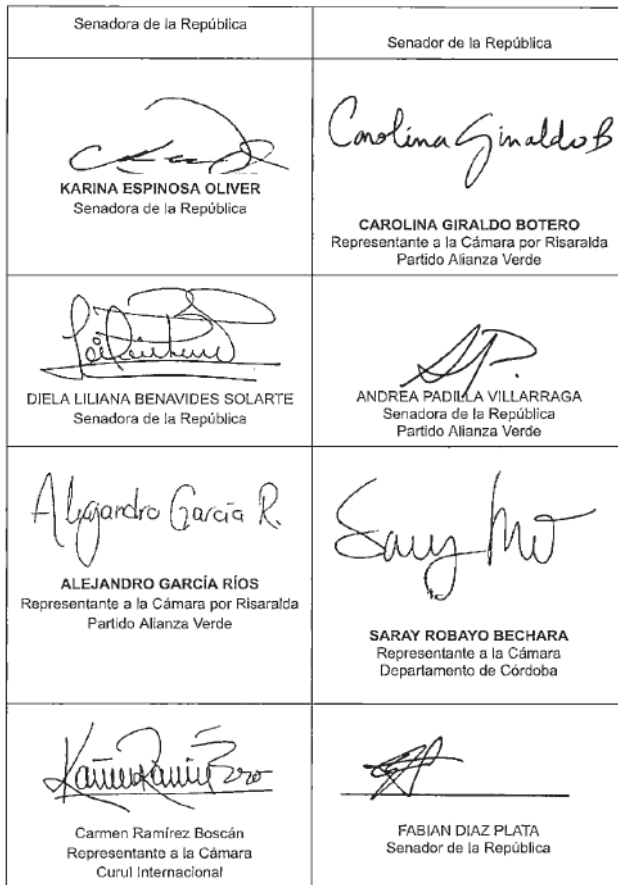 Senadora de la República
Senador de la República
KARINA ESPINOSA OLIVER
Senadora de la República
Carolina Giraldo B
CAROLINA GIRALDO BOTERO
Representante a la Cámara por Risaralda
Partido Alianza Verde
DIELA LILIANA BENAVIDES SOLARTE
Senadora de la República
ANDREA PADILLA VILLARRAGA
Senadora de la República
Partido Alianza Verde
Alejandro García R.
ALEJANDRO GARCÍA RÍOS
Representante a la Cámara por Risaralda
Partido Alianza Verde
SARAY ROBAYO BECHARA
Representante a la Cámara
Departamento de Córdoba
Carmen Ramírez Boscán
Representante a la Cámara
Curul Internacional
FABIAN DIAZ PLATA
Senador de la República